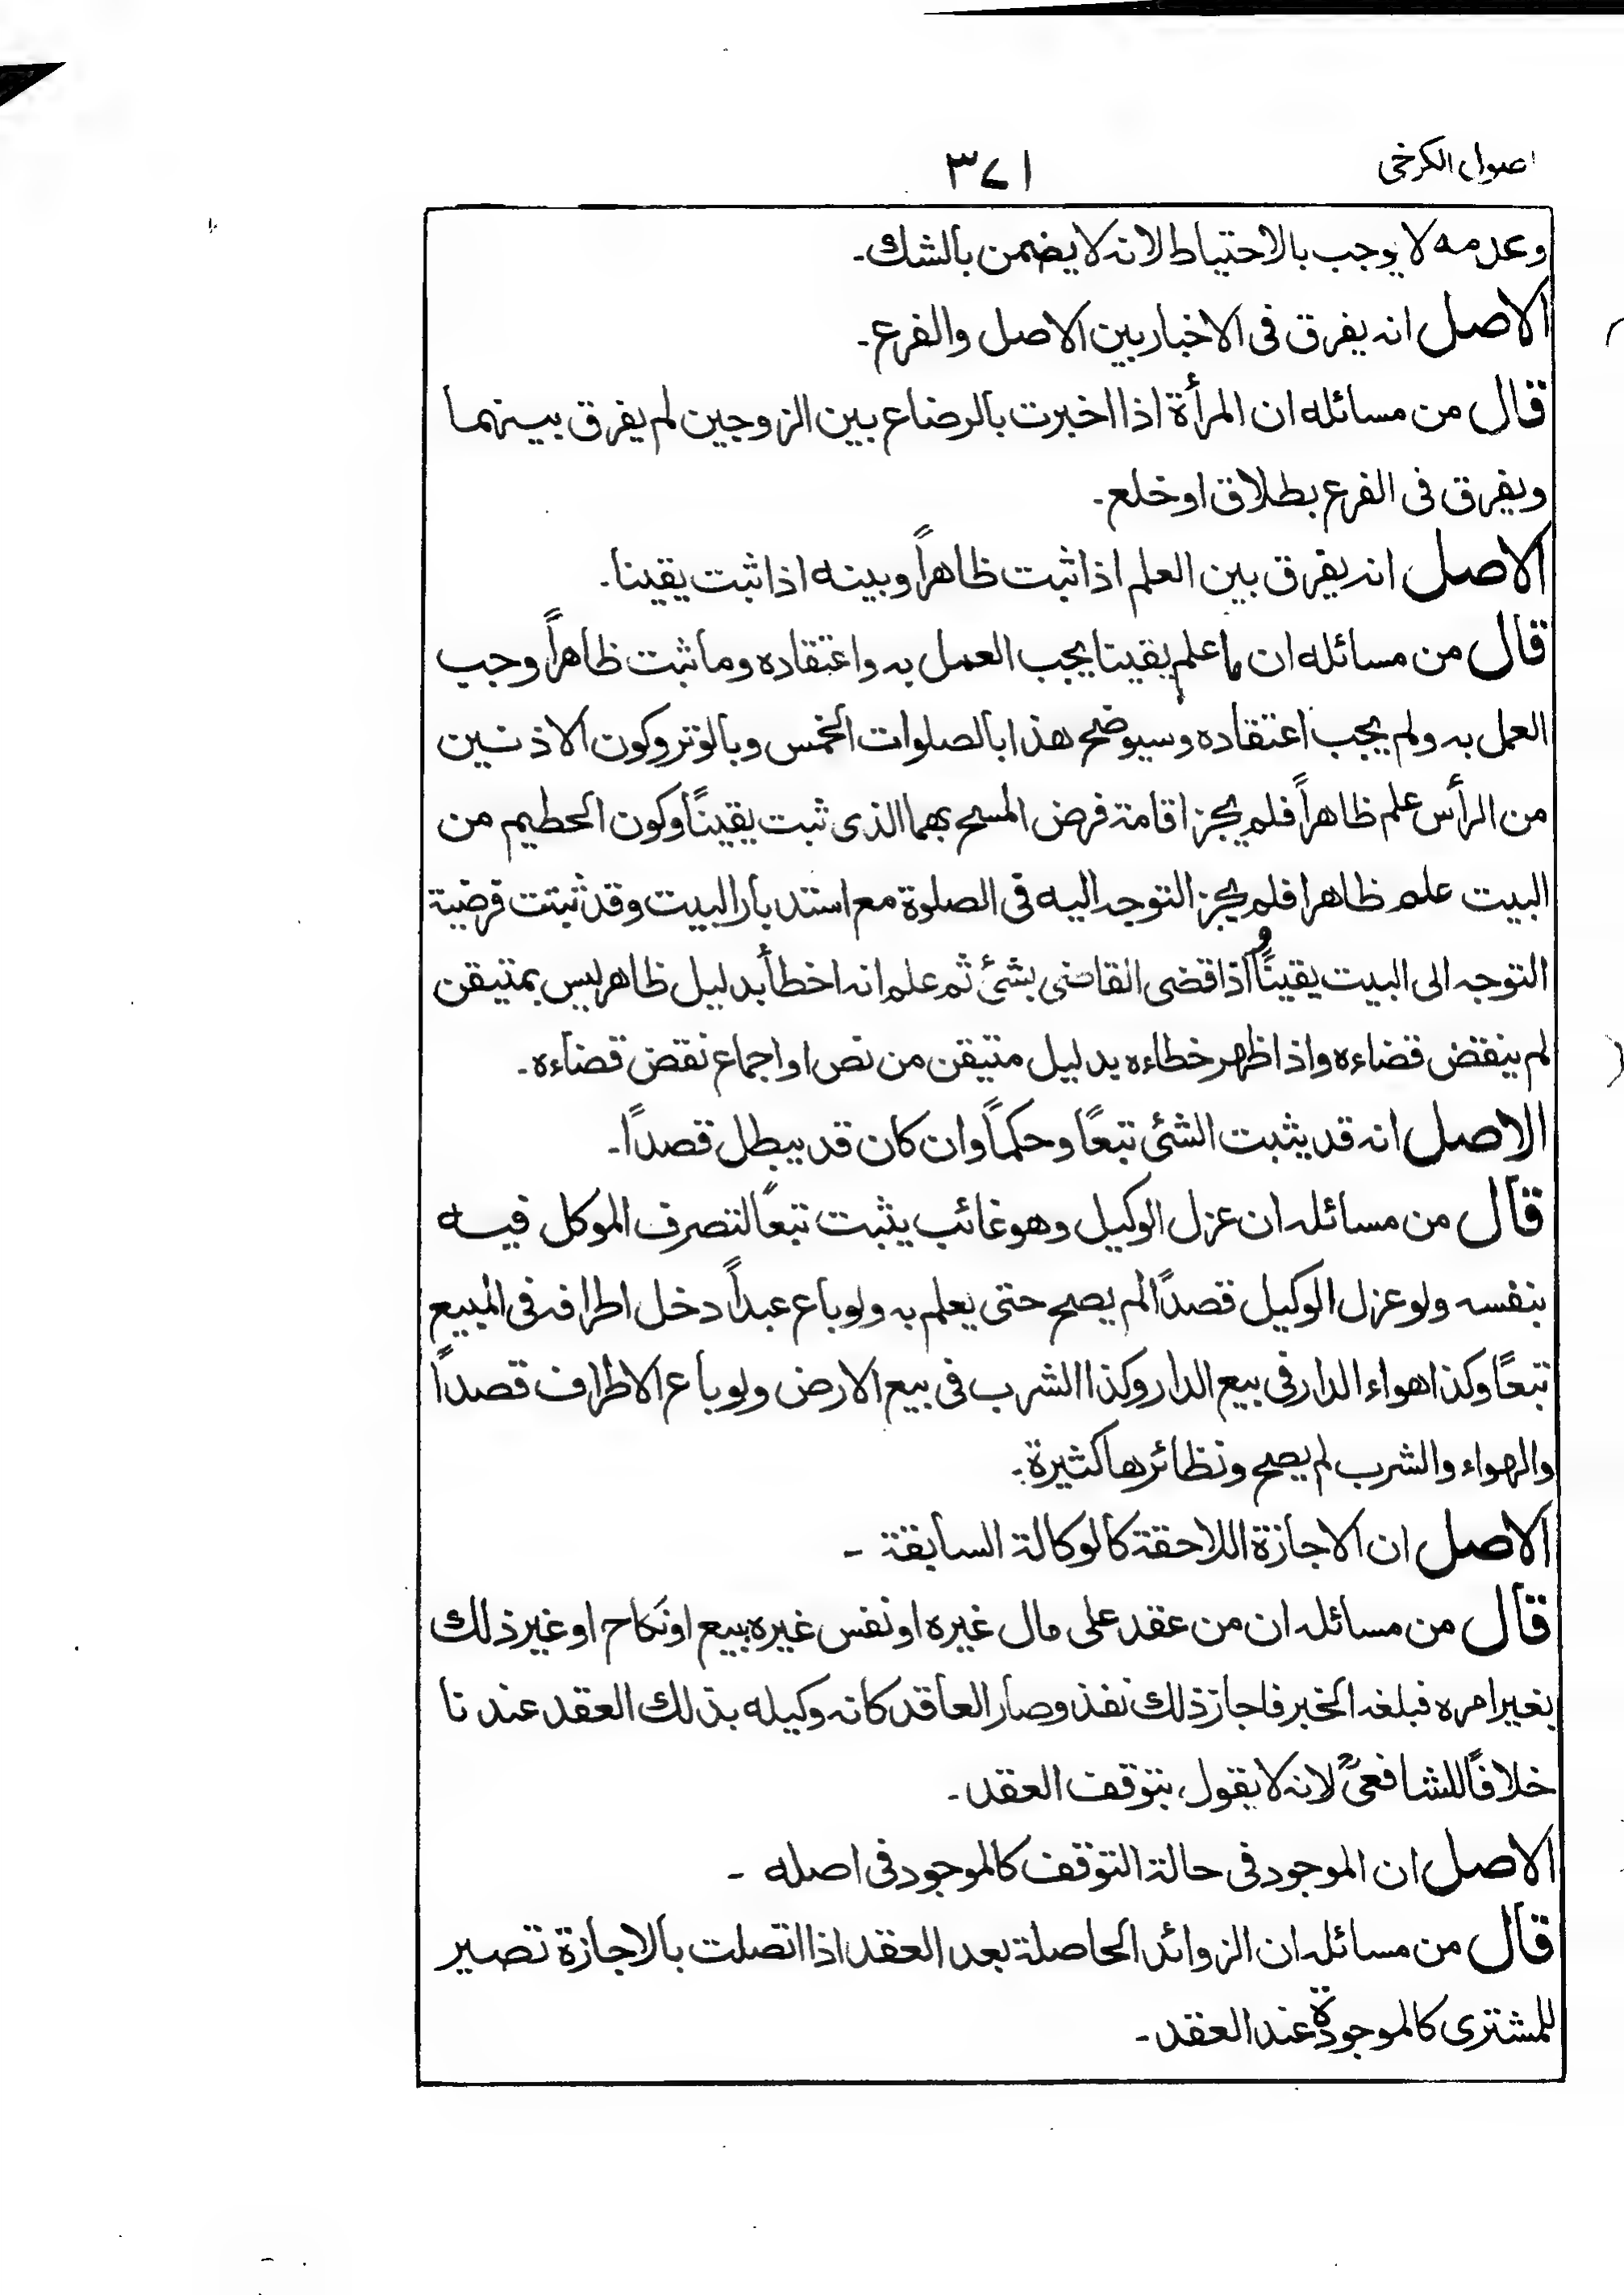 اصول الكرخى ٣٧١
وعدمه لا يوجب بالاحتياط لانه لا يضمن بالشك۔
الاصل انه يفرق فى الاخبار بين الاصل والفرع۔
قال من مسائله ان المرأة اذا اخبرت بالرضاع بين الزوجين لم يفرق بينهما
ويفرق فى الفرع بطلاق او خلع۔
الاصل انه يفرق بين العلم اذا ثبت ظاهراً وبينه اذا ثبت يقينا۔
قال من مسائله ان ما علم يقينا يجب العمل به واعتقاده وما ثبت ظاهراً وجب
العمل به ولم يجب اعتقاده وسيوضح هذا بالصلوات الخمس وبالوتر وكون الاذنين
من الرأس علم ظاهراً فلم يجز اقامة فرض المسح بهما الذى ثبت يقينًا وكون الحطيم من
البيت علم ظاهرا فلم يجز التوجه اليه فى الصلوة مع استدبار البيت وقد ثبتت فرضية
التوجه الى البيت يقينًا وُاذا قضى القاضى بشئ ثم علم انه اخطأ بدليل ظاهر ليس بمتيقن
لم ينقض قضاءه واذا ظهر خطاءه بدليل متيقن من نص او اجماع نقض قضاءه۔
الاصل انه قد يثبت الشئ تبعًا وحكماً وان كان قد يبطل قصدًا۔
قال من مسائله ان عزل الوكيل وهو غائب يثبت تبعًا لتصرف الموكل فيه
بنفسه ولو عزل الوكيل قصدًا لم يصح حتى يعلم به ولو باع عبداً دخل اطرافه فى المبيع
تبعًا وكذا هواء الدار فى بيع الدار وكذا الشرب فى بيع الارض ولو باع الاطراف قصداً
والهواء والشرب لم يصح ونظائرها كثيرة۔
الاصل ان الاجازة اللاحقة كالوكالة السابقة ۔
قال من مسائله ان من عقد على مال غيره او نفس غيره ببيع او نكاح او غير ذلك
بغير امره فبلغه الخبر فاجاز ذلك نفذ وصار العاقد كانه وكيله بذلك العقد عندنا
خلافًا للشافعىؒ لانه لا يقول بتوقف العقد۔
الاصل ان الموجود فى حالة التوقف كالموجود فى اصله ۔
قال من مسائله ان الزوائد الحاصلة بعد العقد اذا اتصلت بالاجازة تصير
للمشترى كالموجودة عند العقد۔